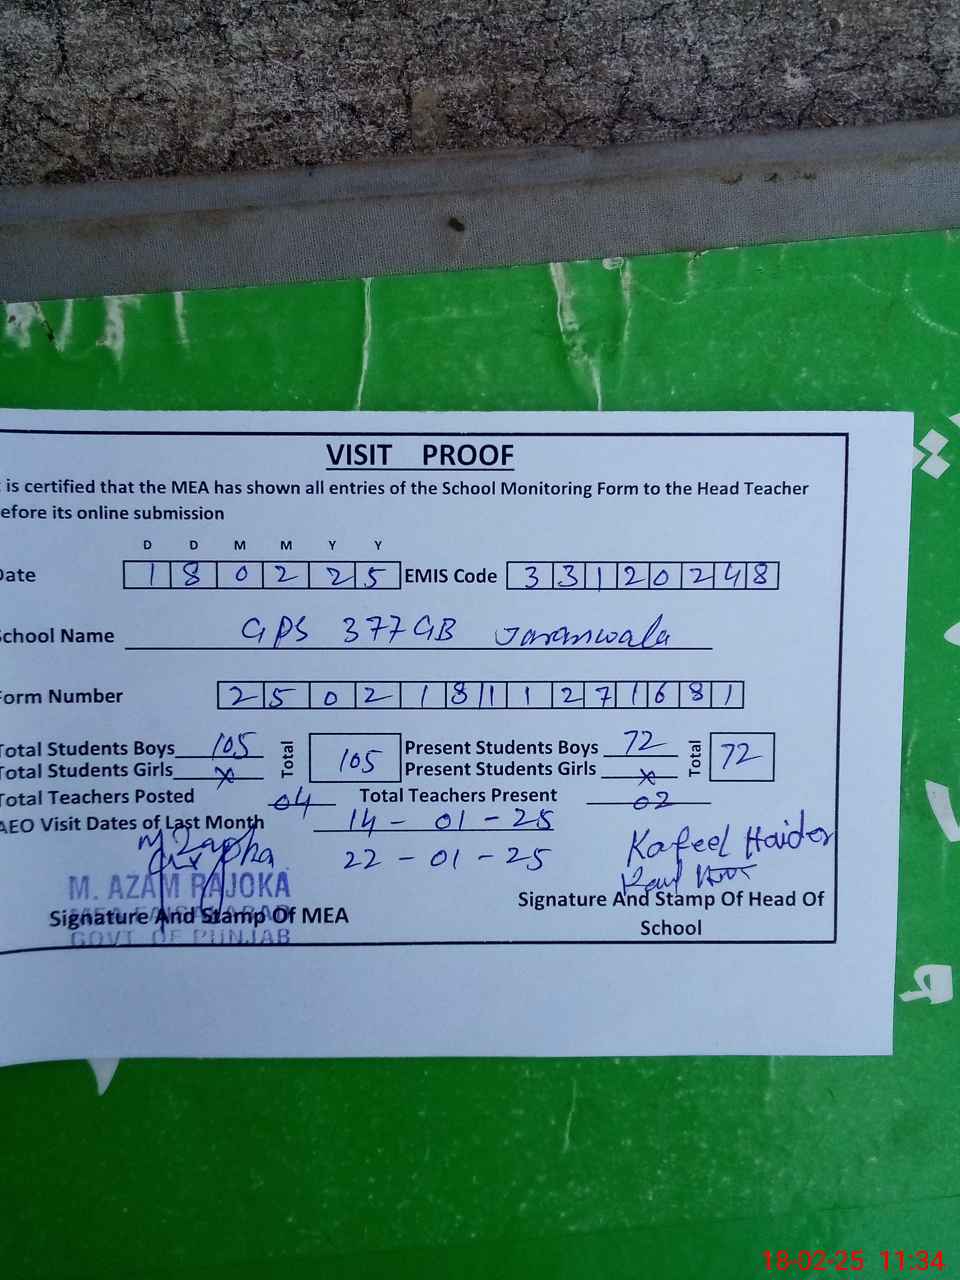 VISIT PROOF
is certified that the MEA has shown all entries of the School Monitoring Form to the Head Teacher
efore its online submission
D D M M Y Y
Date 1 8 0 2 2 5 EMIS Code 3 3 1 2 0 2 4 8
School Name GPS 377 GB Jaranwala
Form Number 2 5 0 2 1 8 1 1 2 7 1 6 8 1
Total Students Boys 105 Total 105 Present Students Boys 72 Total 72
Total Students Girls x Present Students Girls x
Total Teachers Posted 04 Total Teachers Present 02
AEO Visit Dates of Last Month 14 - 01 - 25
22 - 01 - 25 Kafeel Haider
M. AZAM RAJOKA
Signature And Stamp Of MEA Signature And Stamp Of Head Of
School
GOVT OF PUNJAB
18-02-25 11:34